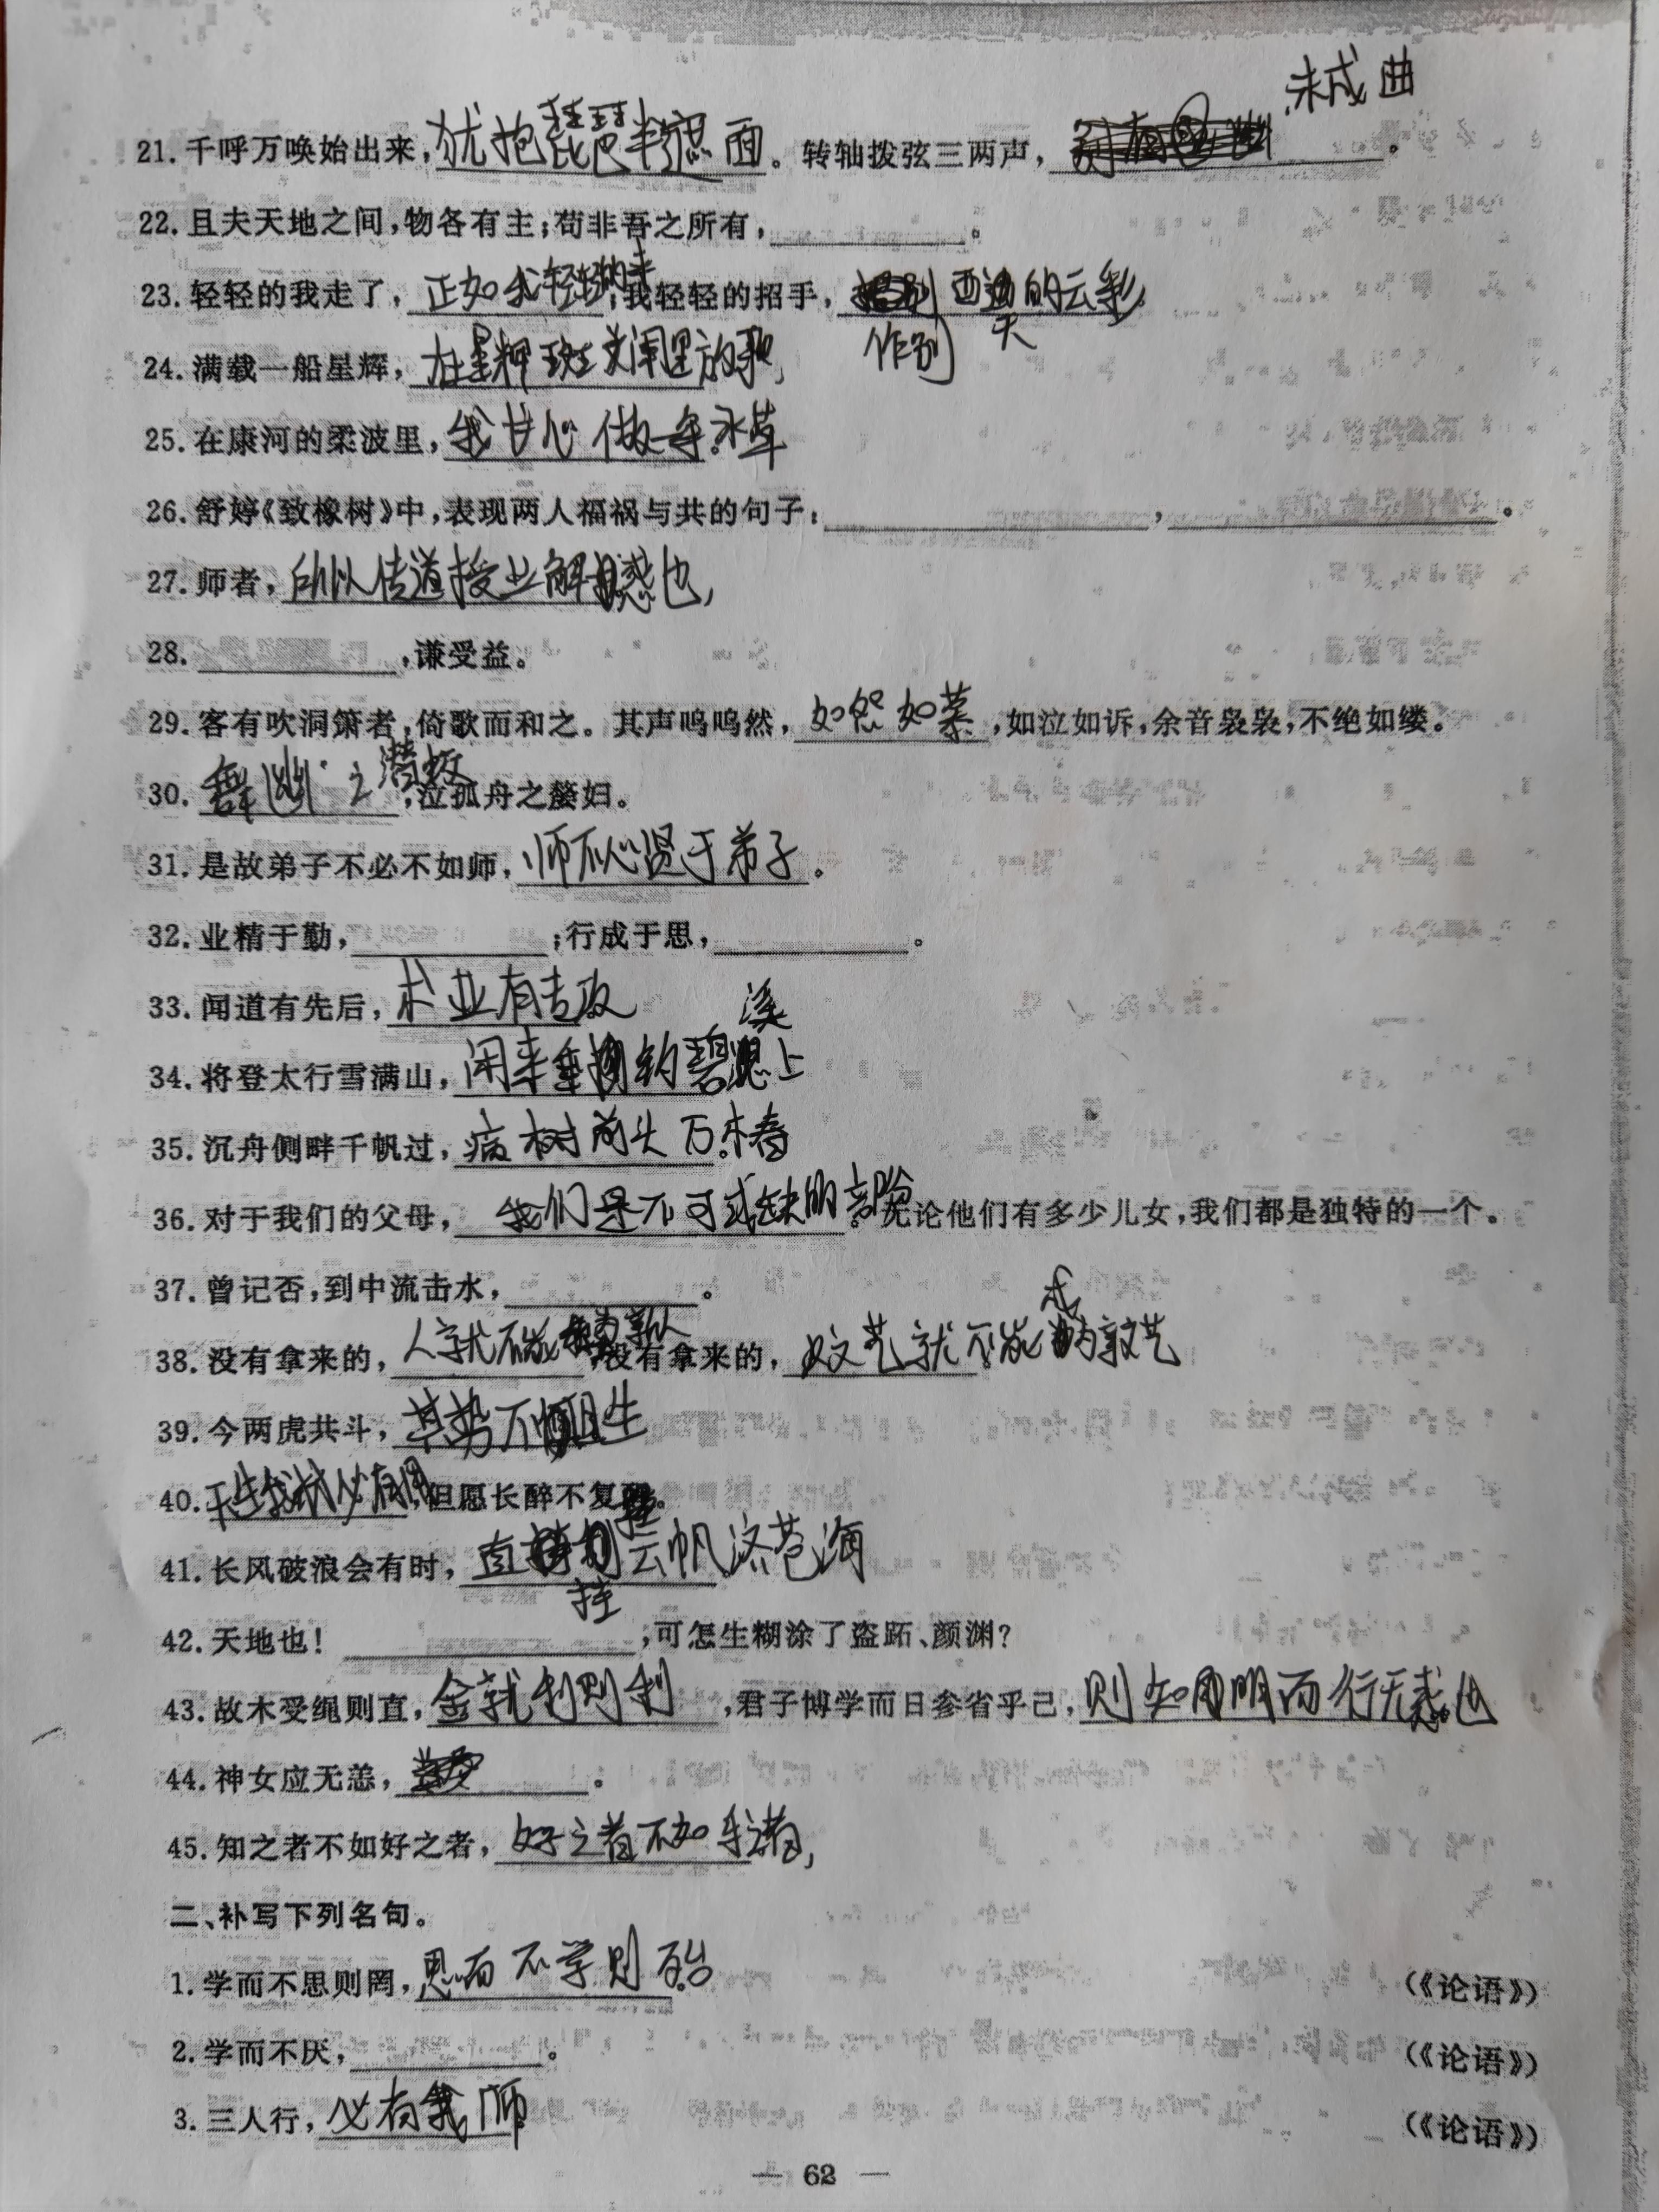 未成曲
21. 千呼万唤始出来,犹抱琵琶半遮面。转轴拨弦三两声,
22. 且夫天地之间,物各有主;苟非吾之所有,。
23. 轻轻的我走了,正如我轻轻的来;我轻轻的招手,西边的云彩
作别 天
24. 满载一船星辉,在星辉斑斓里放歌,
25. 在康河的柔波里,我甘心做一条水草
26. 舒婷《致橡树》中,表现两人福祸与共的句子:,。
27. 师者,所以传道授业解惑也,
28. ,谦受益。
29. 客有吹洞箫者,倚歌而和之。其声呜呜然,如怨如慕,如泣如诉,余音袅袅,不绝如缕。
30. 舞幽之潜,泣孤舟之嫠妇。
31. 是故弟子不必不如师,师不必贤于弟子。
32. 业精于勤,;行成于思,。
33. 闻道有先后,术业有专攻
溪
34. 将登太行雪满山,闲来垂钓碧上
35. 沉舟侧畔千帆过,病树前头万木春
36. 对于我们的父母,我们是不可或缺的部份。无论他们有多少儿女,我们都是独特的一个。
37. 曾记否,到中流击水,。
成
38. 没有拿来的,人就不能新人,没有拿来的,文艺就不能为新文艺
39. 今两虎共斗,其势不俱生
40. 天生我材必有用,但愿长醉不复醒。
41. 长风破浪会有时,直云帆济苍海
挂
42. 天地也!,可怎生糊涂了盗跖、颜渊?
43. 故木受绳则直,金就利则利,君子博学而日参省乎己,则知明而行无惑也
44. 神女应无恙,。
45. 知之者不如好之者,好之者不如乐之者,
二、补写下列名句。
1. 学而不思则罔,思而不学则殆 (《论语》)
2. 学而不厌,。 (《论语》)
3. 三人行,必有我师 (《论语》)
— 62 —